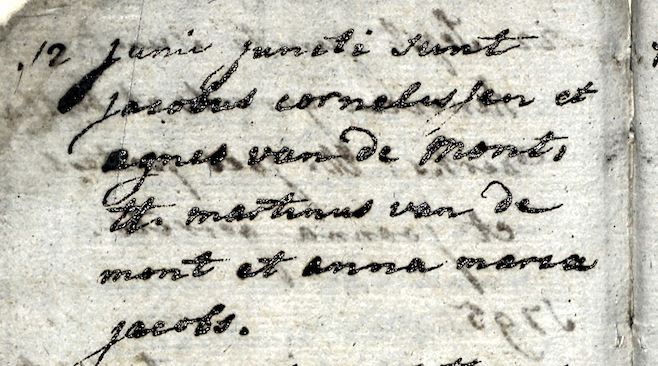 12 junii juncti sunt
jacobus cornelissen et
agnes van de mont,
tt. martinus van de
mont et anna maria
jacobs.